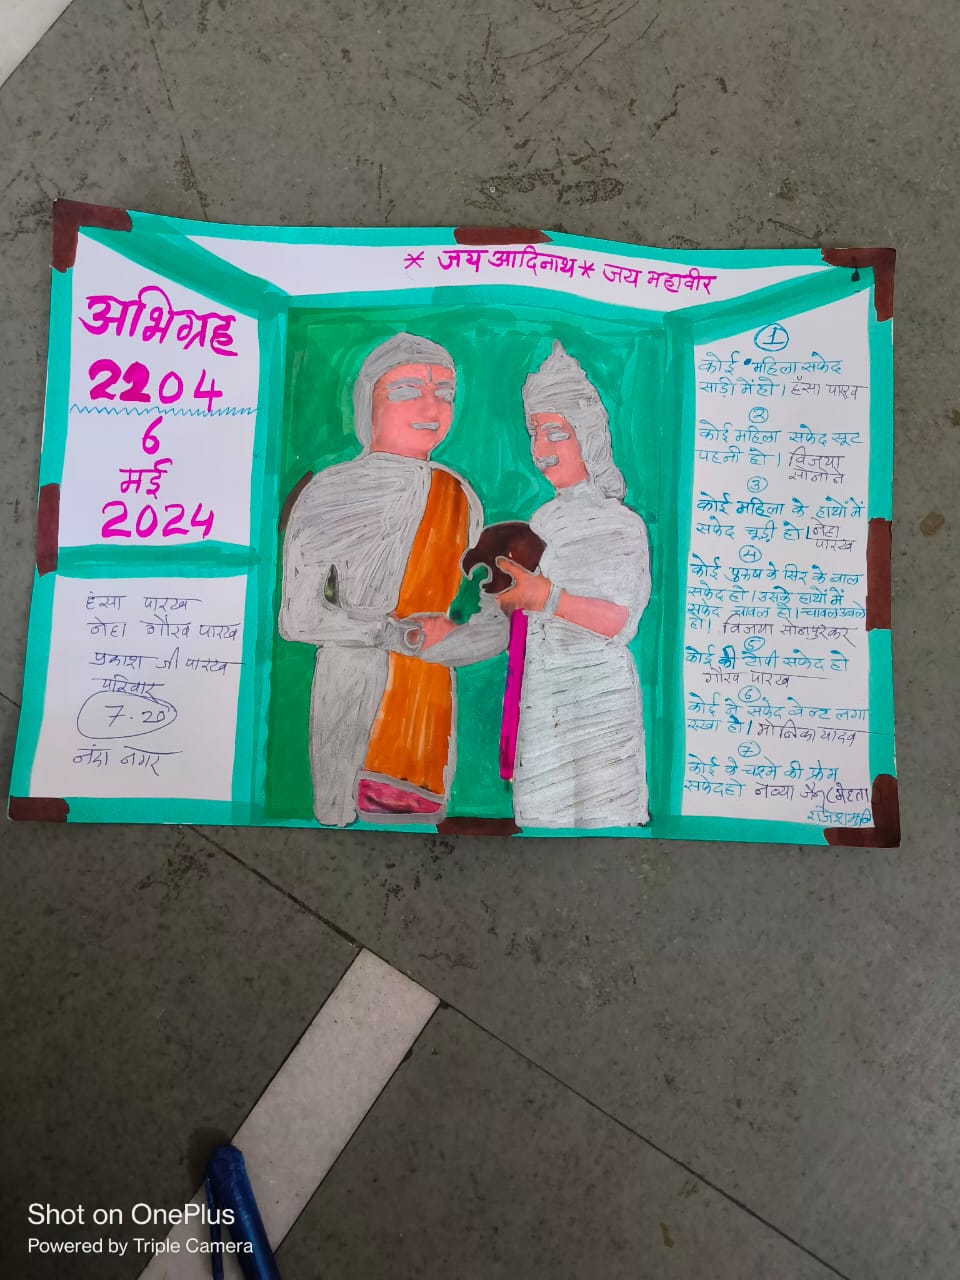 * जय आदिनाथ * जय महावीर
अभिग्रह
2204
6
मई
2024
हंसा पारख
नेहा गौरव पारख
प्रकाश जी पारख
परिवार
7.20
नंदा नगर
1
कोई महिला सफेद
साड़ी में हो। हंसा पारख
2
कोई महिला सफेद सूट
पहनी हो। विजया
सोनाने
3
कोई महिला के हाथों में
सफेद चूड़ी हो। नेहा
पारख
4
कोई पुरुष के सिर के बाल
सफेद हो। उसके हाथों में
सफेद चावल हो। चावल उबले
हो। विजया सोनपुरकर
5
कोई की टोपी सफेद हो
गौरव पारख
6
कोई ने सफेद बेल्ट लगा
रखा हो। मोनिका यादव
7
कोई के चश्मे की फ्रेम
सफेद हो नव्या जैन मेहता
राजेशमुनि
Shot on OnePlus
Powered by Triple Camera